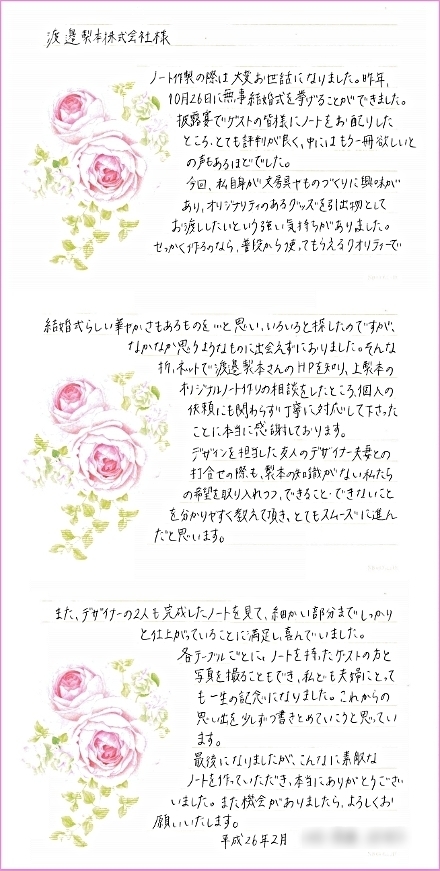 渡邉製本株式会社様
ノート作製の際は大変お世話になりました。昨年、
10月26日に無事結婚式を挙げることができました。
披露宴でゲストの皆様にノートをお配りした
ところ、とても評判が良く、中にはもう一冊欲しいと
の声もあるほどでした。
今回、私自身が文房具やものづくりに興味が
あり、オリジナリティのあるグッズを引出物として
お渡ししたいという強い気持ちがありました。
せっかく作るのなら、普段から使ってもらえるクオリティーで
結婚式らしい華やかさもあるものを…と思い、いろいろと探したのですが、
なかなか思うようなものに出会えずにおりました。そんな
折、ネットで渡邉製本さんのHPを知り、上製本の
オリジナルノート作りの相談をしたところ、個人の
依頼にも関わらず丁寧に対応して下さった
ことに本当に感謝しております。
デザインを担当した友人のデザイナー夫妻との
打合せの際も、製本の知識がない私たち
の希望を取り入れつつ、できること・できないこと
を分かりやすく教えて頂き、とてもスムーズに進ん
だと思います。
また、デザイナーの2人も完成したノートを見て、細かい部分までしっかり
と仕上がっていることに満足し、喜んでいました。
各テーブルごとに、ノートを持ったゲストの方と
写真を撮ることもでき、私ども夫婦にとって
も一生の記念になりました。これからの
思い出を少しずつ書きとめていこうと思ってい
ます。
最後になりましたが、こんなに素敵な
ノートを作っていただき、本当にありがとうござい
いました。また機会がありましたら、よろしくお
願いいたします。
平成26年2月